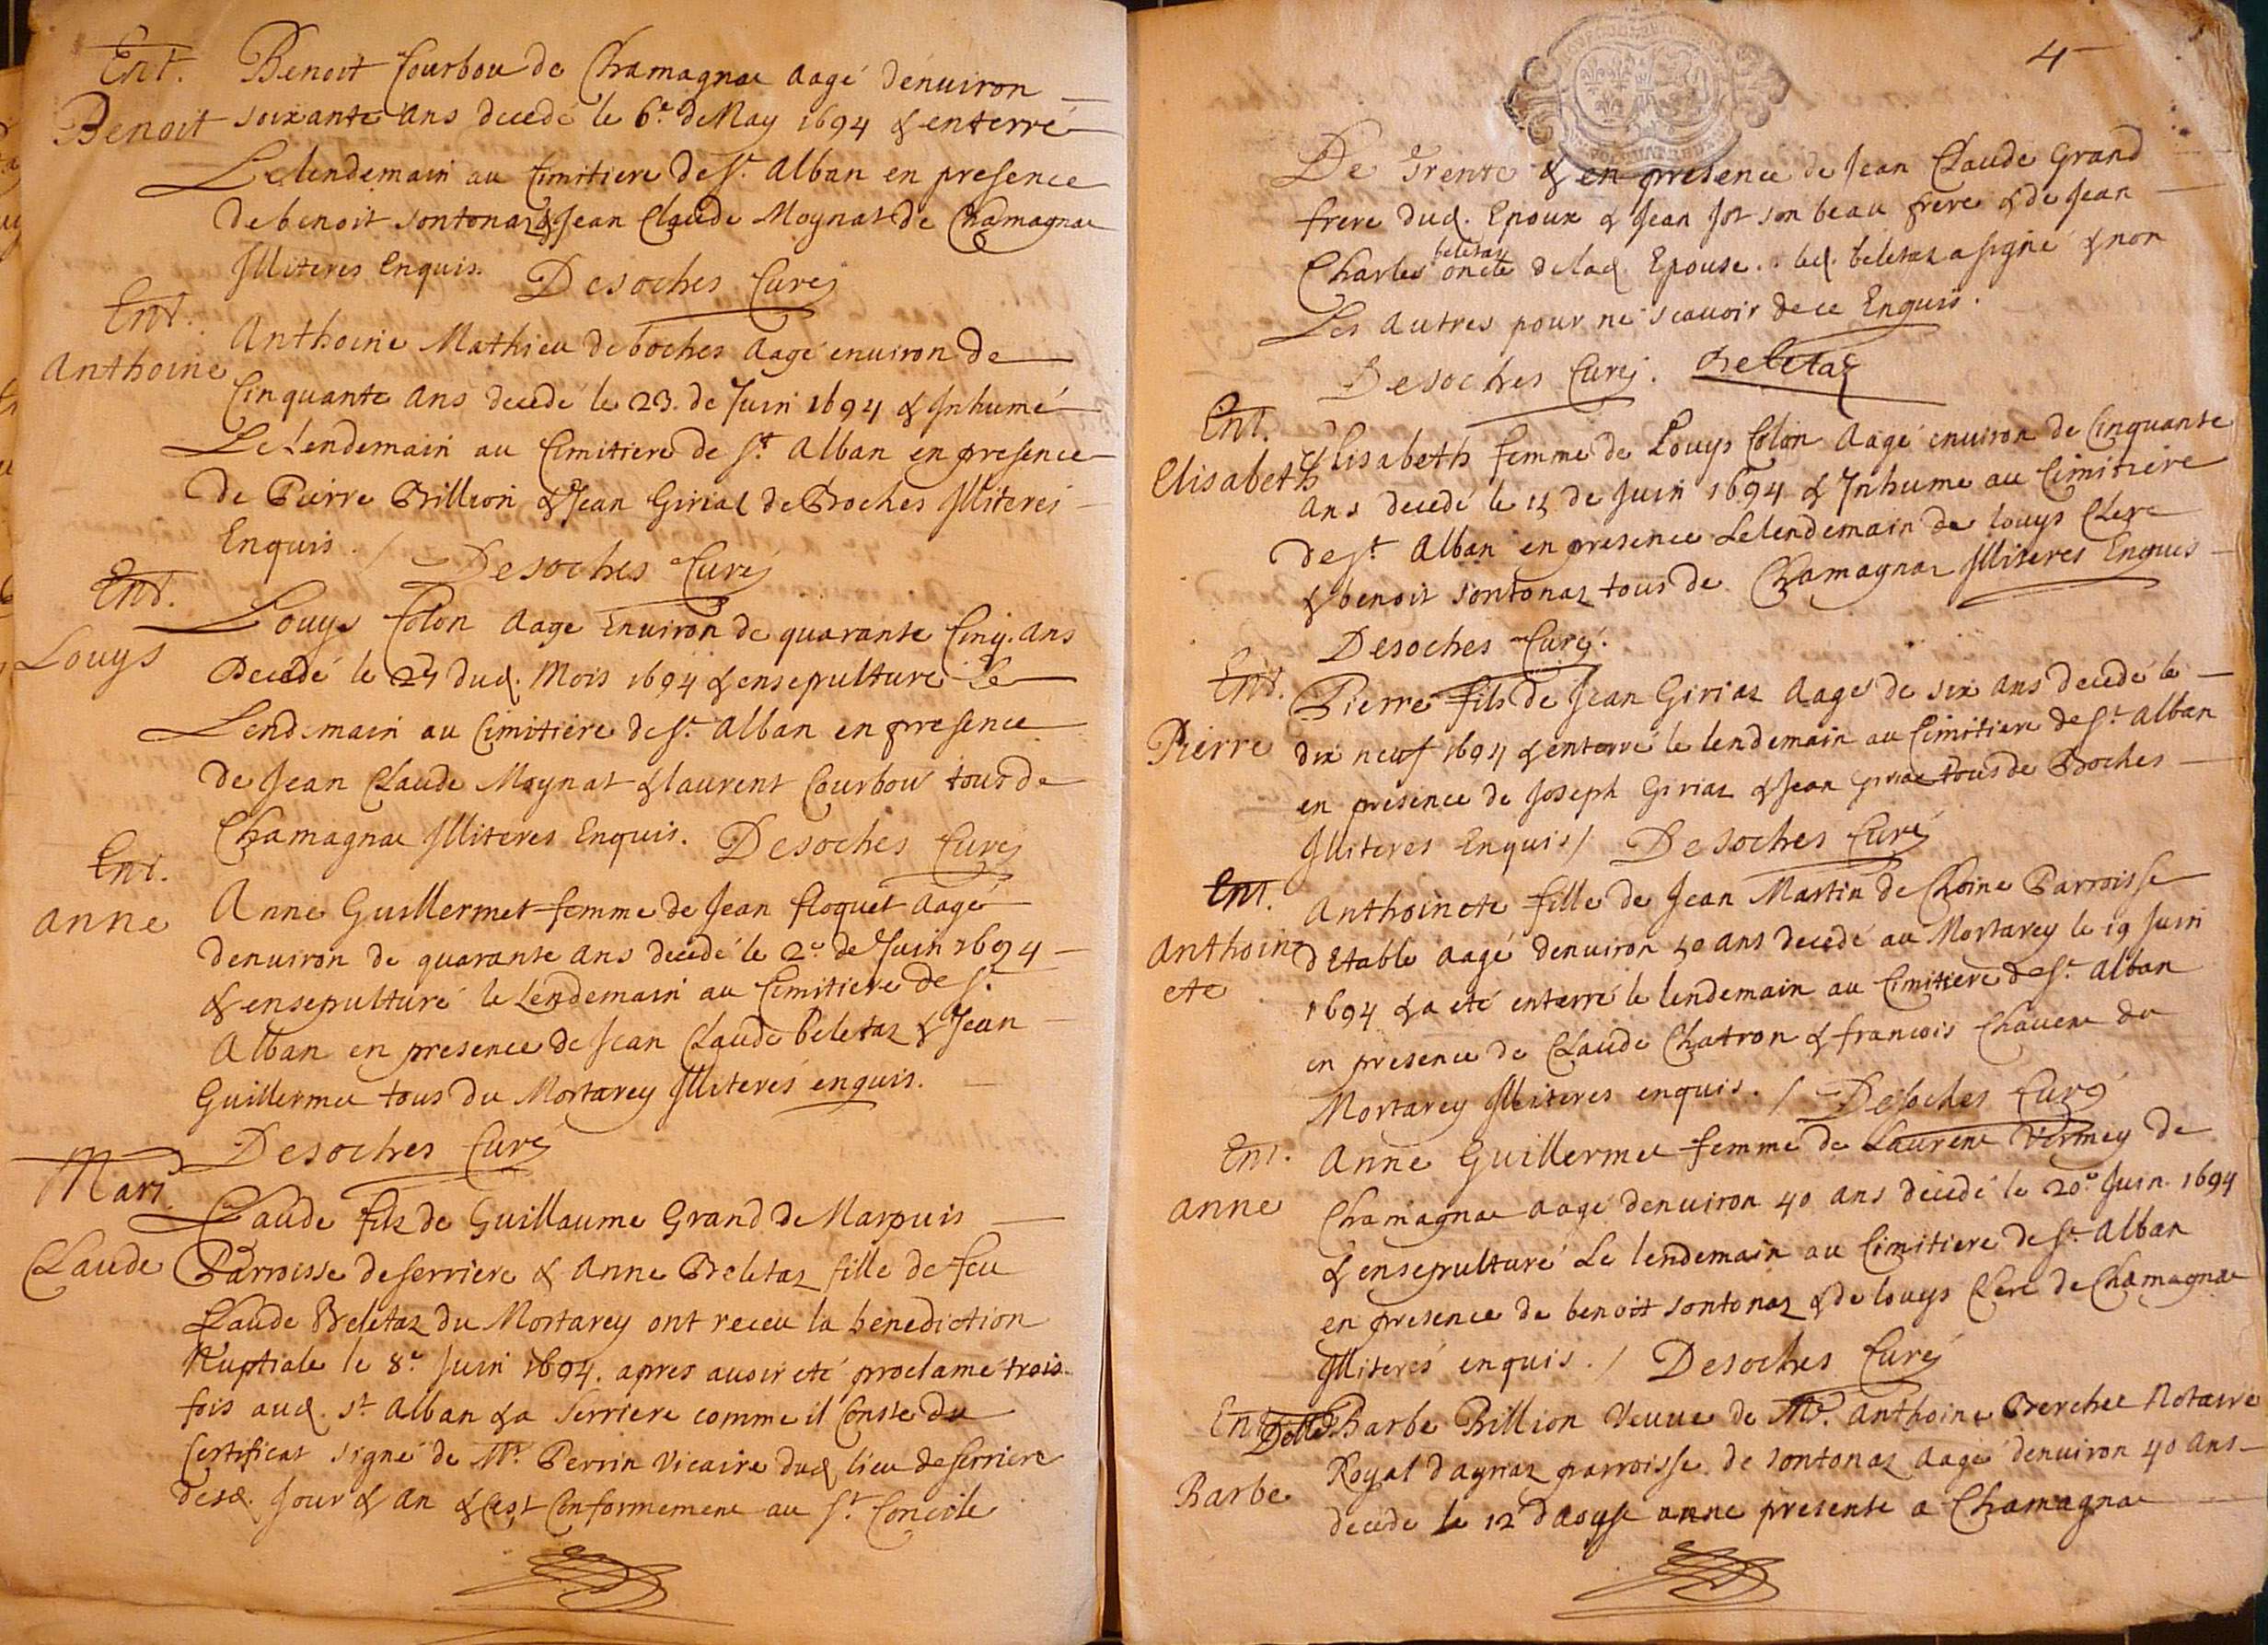 Ent. Benoit Courbou de Chamagnac aagé denuiron
Benoit soixante ans decedé le 6e. de May 1694 & enterré
Le lendemain au Cimitiere de St. Alban en presence
de benoit sontonaz & Jean Claude Moynat de Chamagnac
Illiteres Enquis. Desoches Curé
Ent.
Anthoine Anthoine Mathieu de boches aagé enuiron de
Cinquante ans decedé le 23. de Juin 1694 & Inhumé
Le Lendemain au Cimitiere de St. Alban en presence
de Pierre Brillion & Jean Girial de Boches Illiterés
Enquis. / Desoches Curé
Ent.
Louys Louys Colon aage Enuiron de quarante Cinq. ans
Decedé le 24 dud. Mois 1694 & ensepulturé Le
Lendemain au Cimitiere de St. Alban en presence
de Jean Claude Moynat & laurent Courbou tous de
Chamagnac Illiteres Enquis. Desoches Curé
Ent.
anne Anne Guillermet femme de Jean floquet aagé
denuiron de quarante ans decedé le 2e. de Juin 1694
& ensepulturé le Lendemain au Cimitiere de St.
Alban en presence de Jean Claude beletaz & Jean
Guillermet tous du Mortarey Illiterés enquis.
Desoches Curé
Mari.
Claude Claude fils de Guillaume Grand de Marpuis
Parroisse de serriere & Anne Beletaz fille de feu
Claude Beletaz du Mortarey ont receu la benediction
Nuptiale le 8e. Juin 1694. apres auoir eté proclamé trois
fois aud. St. Alban & a serriere comme il Conste du
Certificat signé de Mr. Perrin Vicaire dud. lieu de serriere
desd. Jour & an & Cest Conformement au St. Concile
4
De Trente & en presence de Jean Claude Grand
frere dud. Epoux & Jean Jot son beau frere & de Jean
Charles beletaz oncle de lad. Epouse. . led. beletaz a signé & non
Les autres pour ne scauoir de ce Enquis.
Desoches Curé. Beletaz
Ent.
Elisabeth Elisabeth femme de Louys Colon aagé enuiron de Cinquante
ans decedé le 15 de Juin 1694 & Inhume au Cimitiere
de St. Alban en presence Le lendemain de louys Clerc
& benoit sontonaz tous de Chamagnaz Illiteres Enquis
Desoches Curé.
Ent.
Pierre Pierre fils de Jean Giriaz aagé de six ans decedé le
dix neuf 1694 & enterré le lendemain au Cimitiere de St. alban
en presence de Joseph Giriaz & Jean Giriaz tous de Boches
Illiteres Enquis / Desoches Curé
Ent. Anthoinete fille de Jean Martin de Choine Parroisse
Anthoin d'Etable aagé denuiron 50 ans decedé au Mortarey le 19 Juin
ete 1694 & a eté enterré le lendemain au Cimitiere de St. alban
en presence de Claude Chatron & francois Chauene du
Mortarey Illiteres enquis. / Desoches Curé
Ent. Anne Guillermet femme de Laurent Vermey de
anne Chamagnac aagé denuiron 40 ans decedé le 20e. Juin. 1694
& ensepulturé Le lendemain au Cimitiere de St. Alban
en presence de benoit sontonaz & de louys Clerc de Chamagnac
Illiterés enquis. / Desoches Curé
Ent. Delle Barbe Brillion Veuue de Mr. Anthoine Berchet Notaire
Royal dayriaz parroisse de sontonaz aagé denuiron 40 ans
Barbe decede le 12 daoust anne presente a Chamagnac